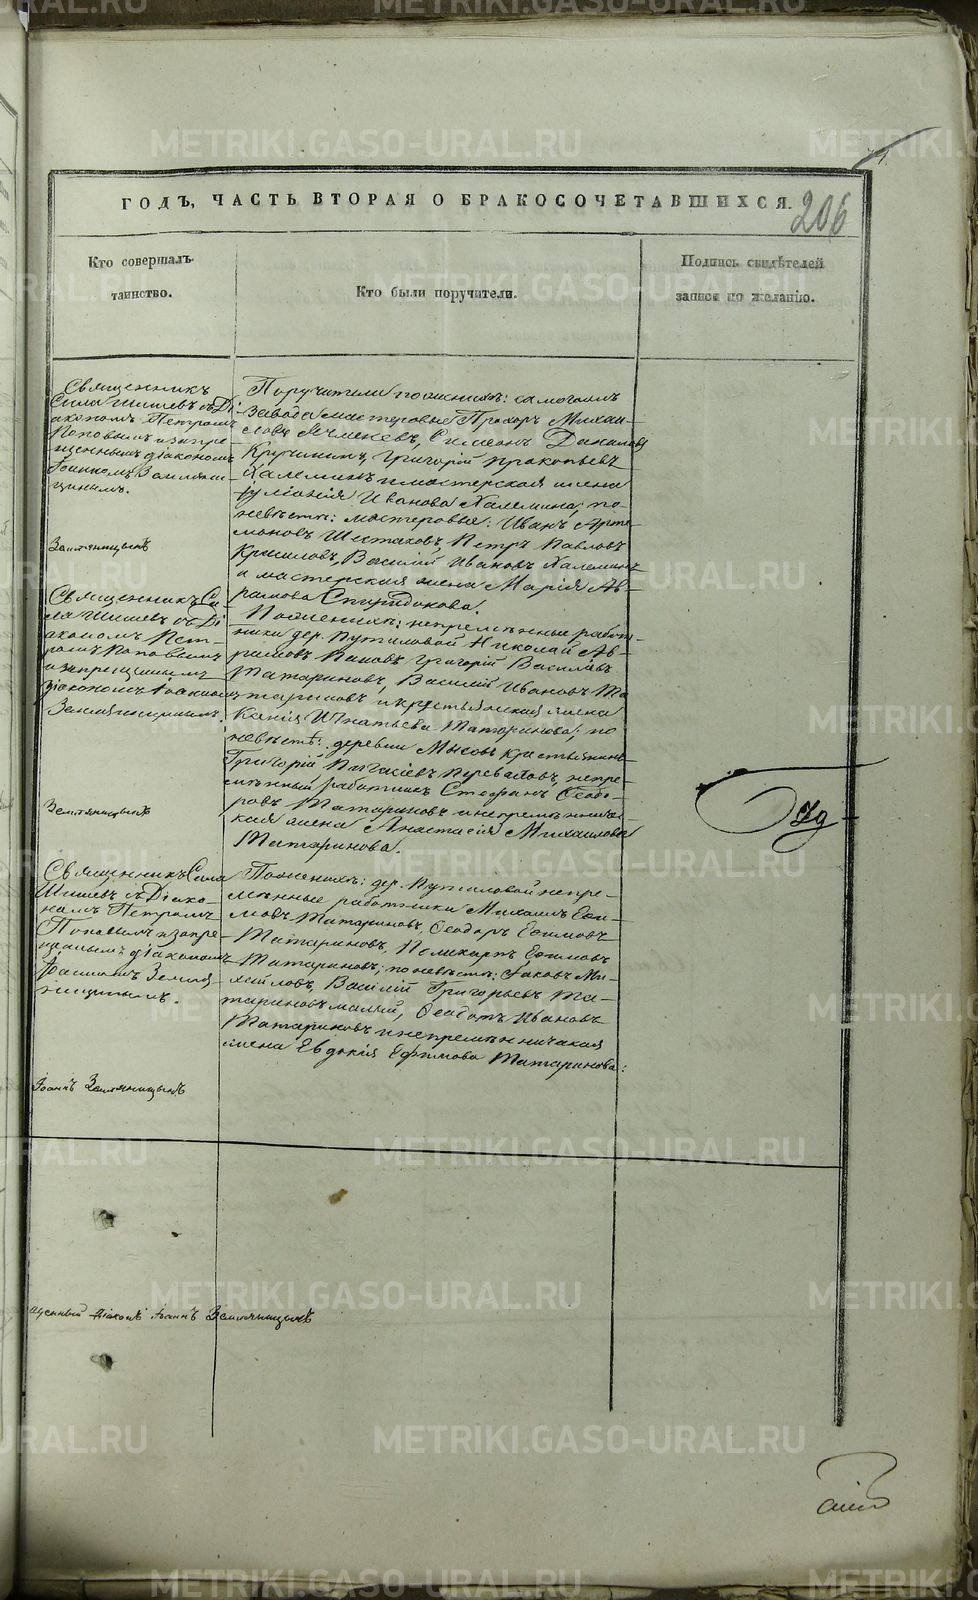 ГОДЪ, ЧАСТЬ ВТОРАЯ О БРАКОСОЧЕТАВШИХСЯ.
206
Кто совершалъ
таинство.
Кто были поручители.
Подпись свидѣтелей
записи по желанію.
Священникъ
Сила Шишевъ съ Ді
акономъ Петромъ
Поповымъ и запре
щеннымъ діакономъ
Іоанномъ Земляни
цынымъ.
Земляницынъ
Поручители по женихѣ: самогомъ
завода мастеровые Прохоръ Михаи
ловъ Ячменевъ, Симеонъ Даниловъ
Кручининъ, Григорій Прокопьевъ
Халеминъ и мастерская жена
Іуліанія Иванова Халемина; по
невѣстѣ: мастеровые: Иванъ Арте
моновъ Шестаковъ, Петръ Павловъ
Василій Ивановъ Халеминъ
и мастерская жена Марія Ав
рамова Спиридонова.
Священникъ Си
ла Шишевъ съ Ді
акономъ Пет
ромъ Поповымъ
и запрещеннымъ
діакономъ Іоанномъ
Земляницынымъ.
Земляницынъ
По женихѣ: непремѣнные работ
ники дер. Путиловой Николай Ав
рамовъ Пановъ, Григорій Васильевъ
Татариновъ, Василій Ивановъ Та
тариновъ и крестьянская жена
Ксенія Игнатьева Татаринова; по
невѣстѣ: деревни Мысовъ крестьянинъ
Григорій Переваловъ, непре
мѣнный работникъ Стефанъ Ѳеодо
ровъ Татариновъ и непремѣнниче
ская жена Анастасія Михайлова
Татаринова.
Священникъ Сила
Шишевъ съ Діако
номъ Петромъ
Поповымъ и запре
щеннымъ діакономъ
Іоанномъ Земля
ницынымъ.
Іоаннъ Земляницынъ
По женихѣ: дер. Путиловой непре
мѣнные работники Михаилъ Ефи
мовъ Татариновъ, Ѳеодоръ Ефимовъ
Татариновъ, Поликарпъ Ефимовъ
Татариновъ; по невѣстѣ: Іаковъ Ми
хайловъ, Василій Григорьевъ Та
тариновъ малый, Ѳедотъ Ивановъ
Татариновъ и непремѣнническая
жена Евдокія Ефимова Татаринова:
щенный діаконъ Іоаннъ Земляницынъ
METRIKI.GASO-URAL.RU